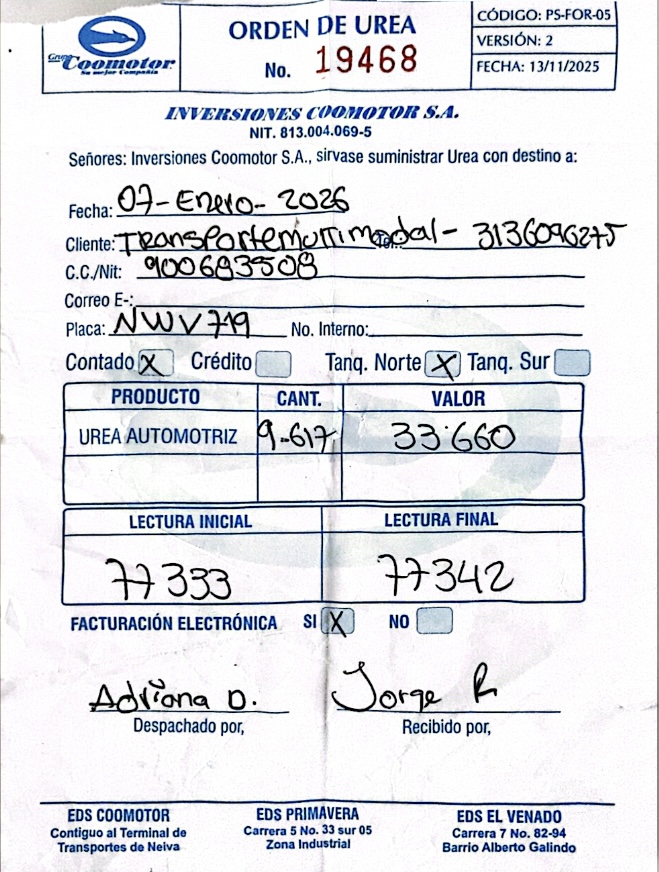 Grupo Coomotor
Su mejor Compañía
ORDEN DE UREA
No. 19468
CÓDIGO: PS-FOR-05
VERSIÓN: 2
FECHA: 13/11/2025
INVERSIONES COOMOTOR S.A.
NIT. 813.004.069-5
Señores: Inversiones Coomotor S.A., sirvase suministrar Urea con destino a:
Fecha: 07-Enero-2026
Cliente: Transportemultimodal- 3136096275
C.C./Nit: 900683508
Correo E-:
Placa: NWV719 No. Interno:
Contado X Crédito Tanq. Norte X Tanq. Sur
PRODUCTO CANT. VALOR
UREA AUTOMOTRIZ 9-617 33.660
LECTURA INICIAL LECTURA FINAL
77333 77342
FACTURACIÓN ELECTRÓNICA SI X NO
Adriana D. Jorge R
Despachado por, Recibido por,
EDS COOMOTOR EDS PRIMAVERA EDS EL VENADO
Contiguo al Terminal de Carrera 5 No. 33 sur 05 Carrera 7 No. 82-94
Transportes de Neiva Zona Industrial Barrio Alberto Galindo